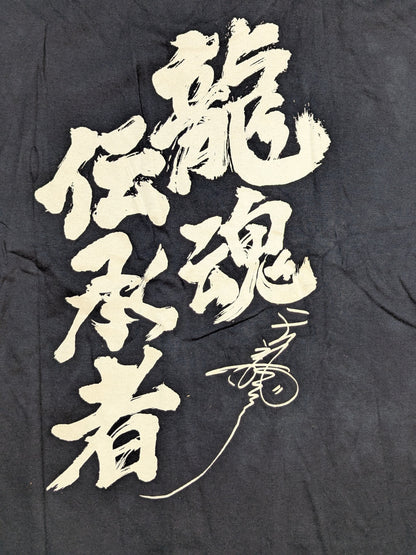 龍魂
伝承者